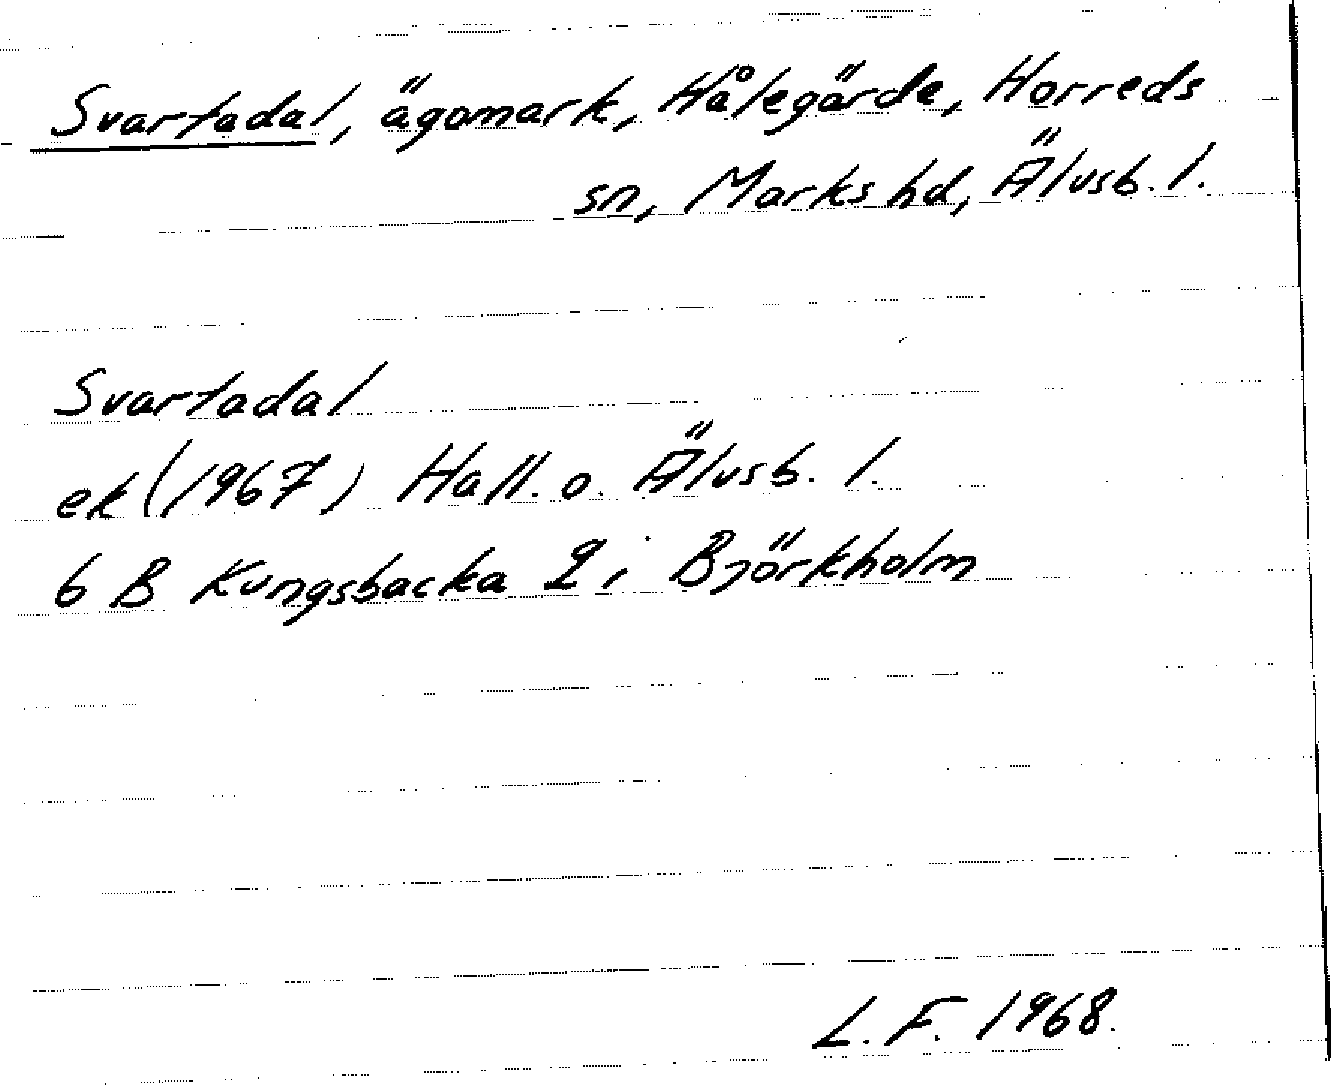 Svartadal, ägomark, Hålegärde, Horreds
sn, Marks hd, Älvsb. l.
Svartadal
ek (1967) Hall. o. Älvsb. l.
6 B Kungsbacka 2 i Björkholm
L. F. 1968.